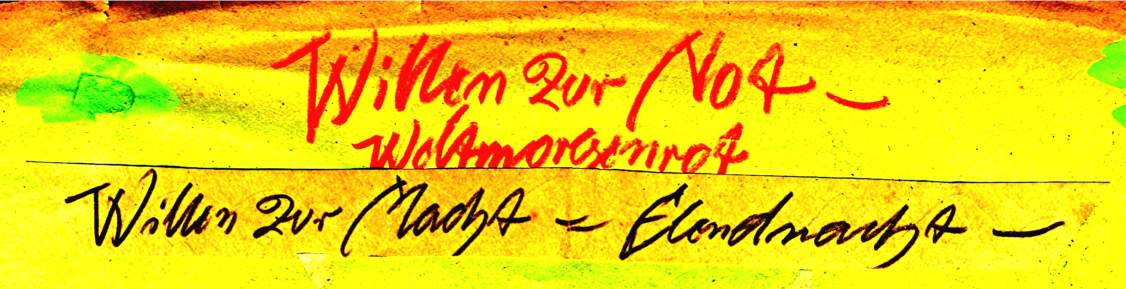 Willen zur Not –
Weltmorgenrot
Willen zur Macht – Elendnacht –